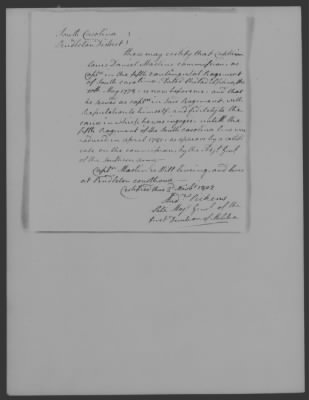 South Carolina }
Pendleton District }
These may certify that Captain
Daniel commission, as
Captn in the fifth Continental Regiment
of South Carolina dated
May 1778 is now before me, and that
he served as Captn in said Regiment, with
reputation to himself, and fidelity to the
cause in which he was engaged untill the
fifth Regiment of the South Carolina line was
reduced in April 1780, as appears by a certifi
cate on the commission by the
of the Southern army
Captn is still living, and lives
at Pendleton courthouse
Certified this 1802
Andw Pickens
late Majr Genl of the
first Division of Militia